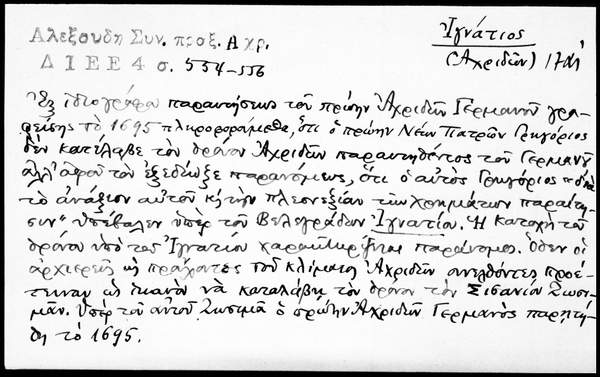 Ἰγνάτιος
(Ἀχριδῶν)
Αλεξούδη Συν. προξ. Α χρ.
Δ Ι Ε Ε 4 σ. 554-556
Ἐξ ἰδιογράφου παραιτήσεως τοῦ πρώην Ἀχριδῶν Γερμανοῦ γρα-
φείσης τὸ 1695 πληροφορούμεθα, ὅτι ὁ πρώην Νέων Πατρῶν Γρηγόριος
δὲν κατέλαβε τὸν θρόνον Ἀχριδῶν παραιτηθέντος τοῦ Γερμανοῦ
ἀλλ' ἀφοῦ τὸν ἐξεδίωξε παρανόμως, ὅτι ὁ αὐτὸς Γρηγόριος "διὰ
τὸ ἀνάξιον αὐτοῦ κ' τὴν πλεονεξίαν τῶν χρημάτων παραίτη-
σιν" ὑπέβαλεν ὑπὲρ τοῦ Βελογράδων Ἰγνατίου. Ἡ κατοχὴ τοῦ
θρόνου ὑπὸ τοῦ Ἰγνατίου χαρακτηρίζεται παράνομος. Ὅθεν οἱ
ἀρχιερεῖς τοῦ κλίματος Ἀχριδῶν συνελθόντες προέ-
τειναν ὡς ἱκανὸν νὰ καταλάβῃ τὸν θρόνον τὸν Σισανίου Ζωσι-
μᾶν. Ὑπὲρ τοῦ αὐτοῦ Ζωσιμᾶ ὁ πρώην Ἀχριδῶν Γερμανὸς παρῃτή-
θη τὸ 1695.